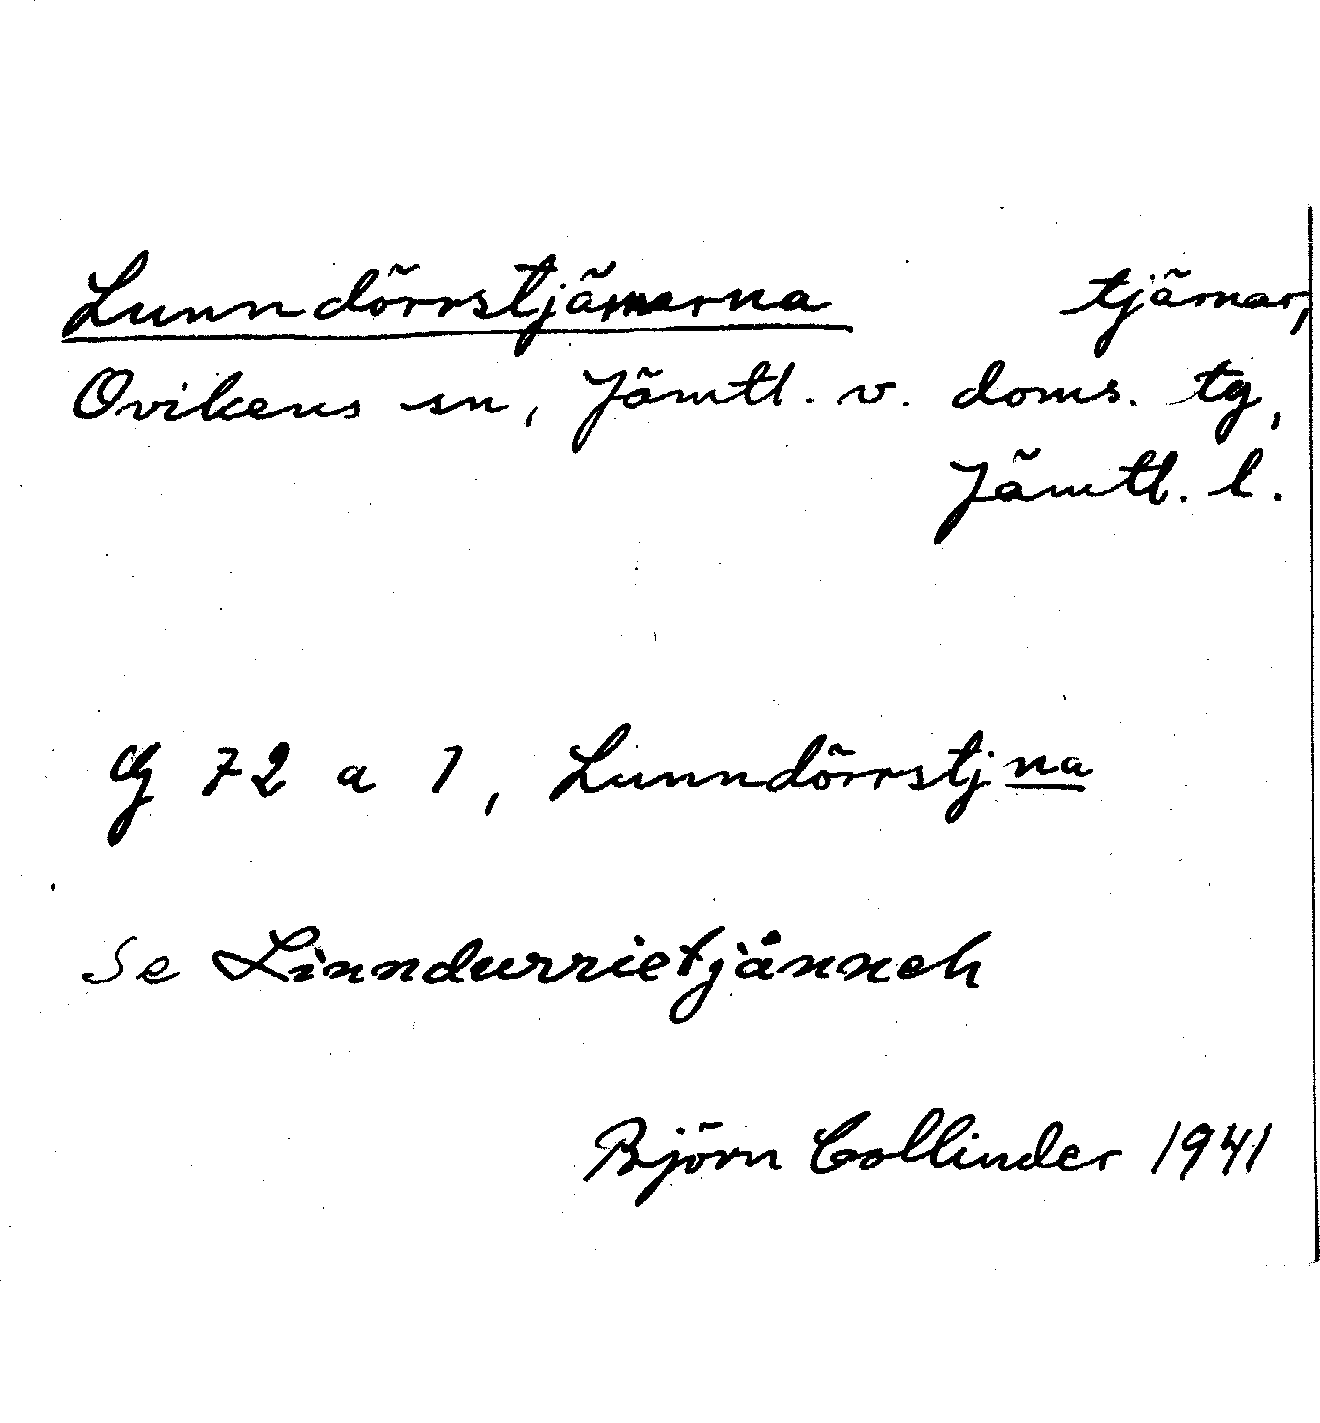 Lunndörrstjärnarna tjärnar,
Ovikens sn, Jämtl. v. doms. tg,
Jämtl. l.
G 72 a 1, Lunndörrstjna
Se Linndurrietjånneh
Björn Collinder 1941